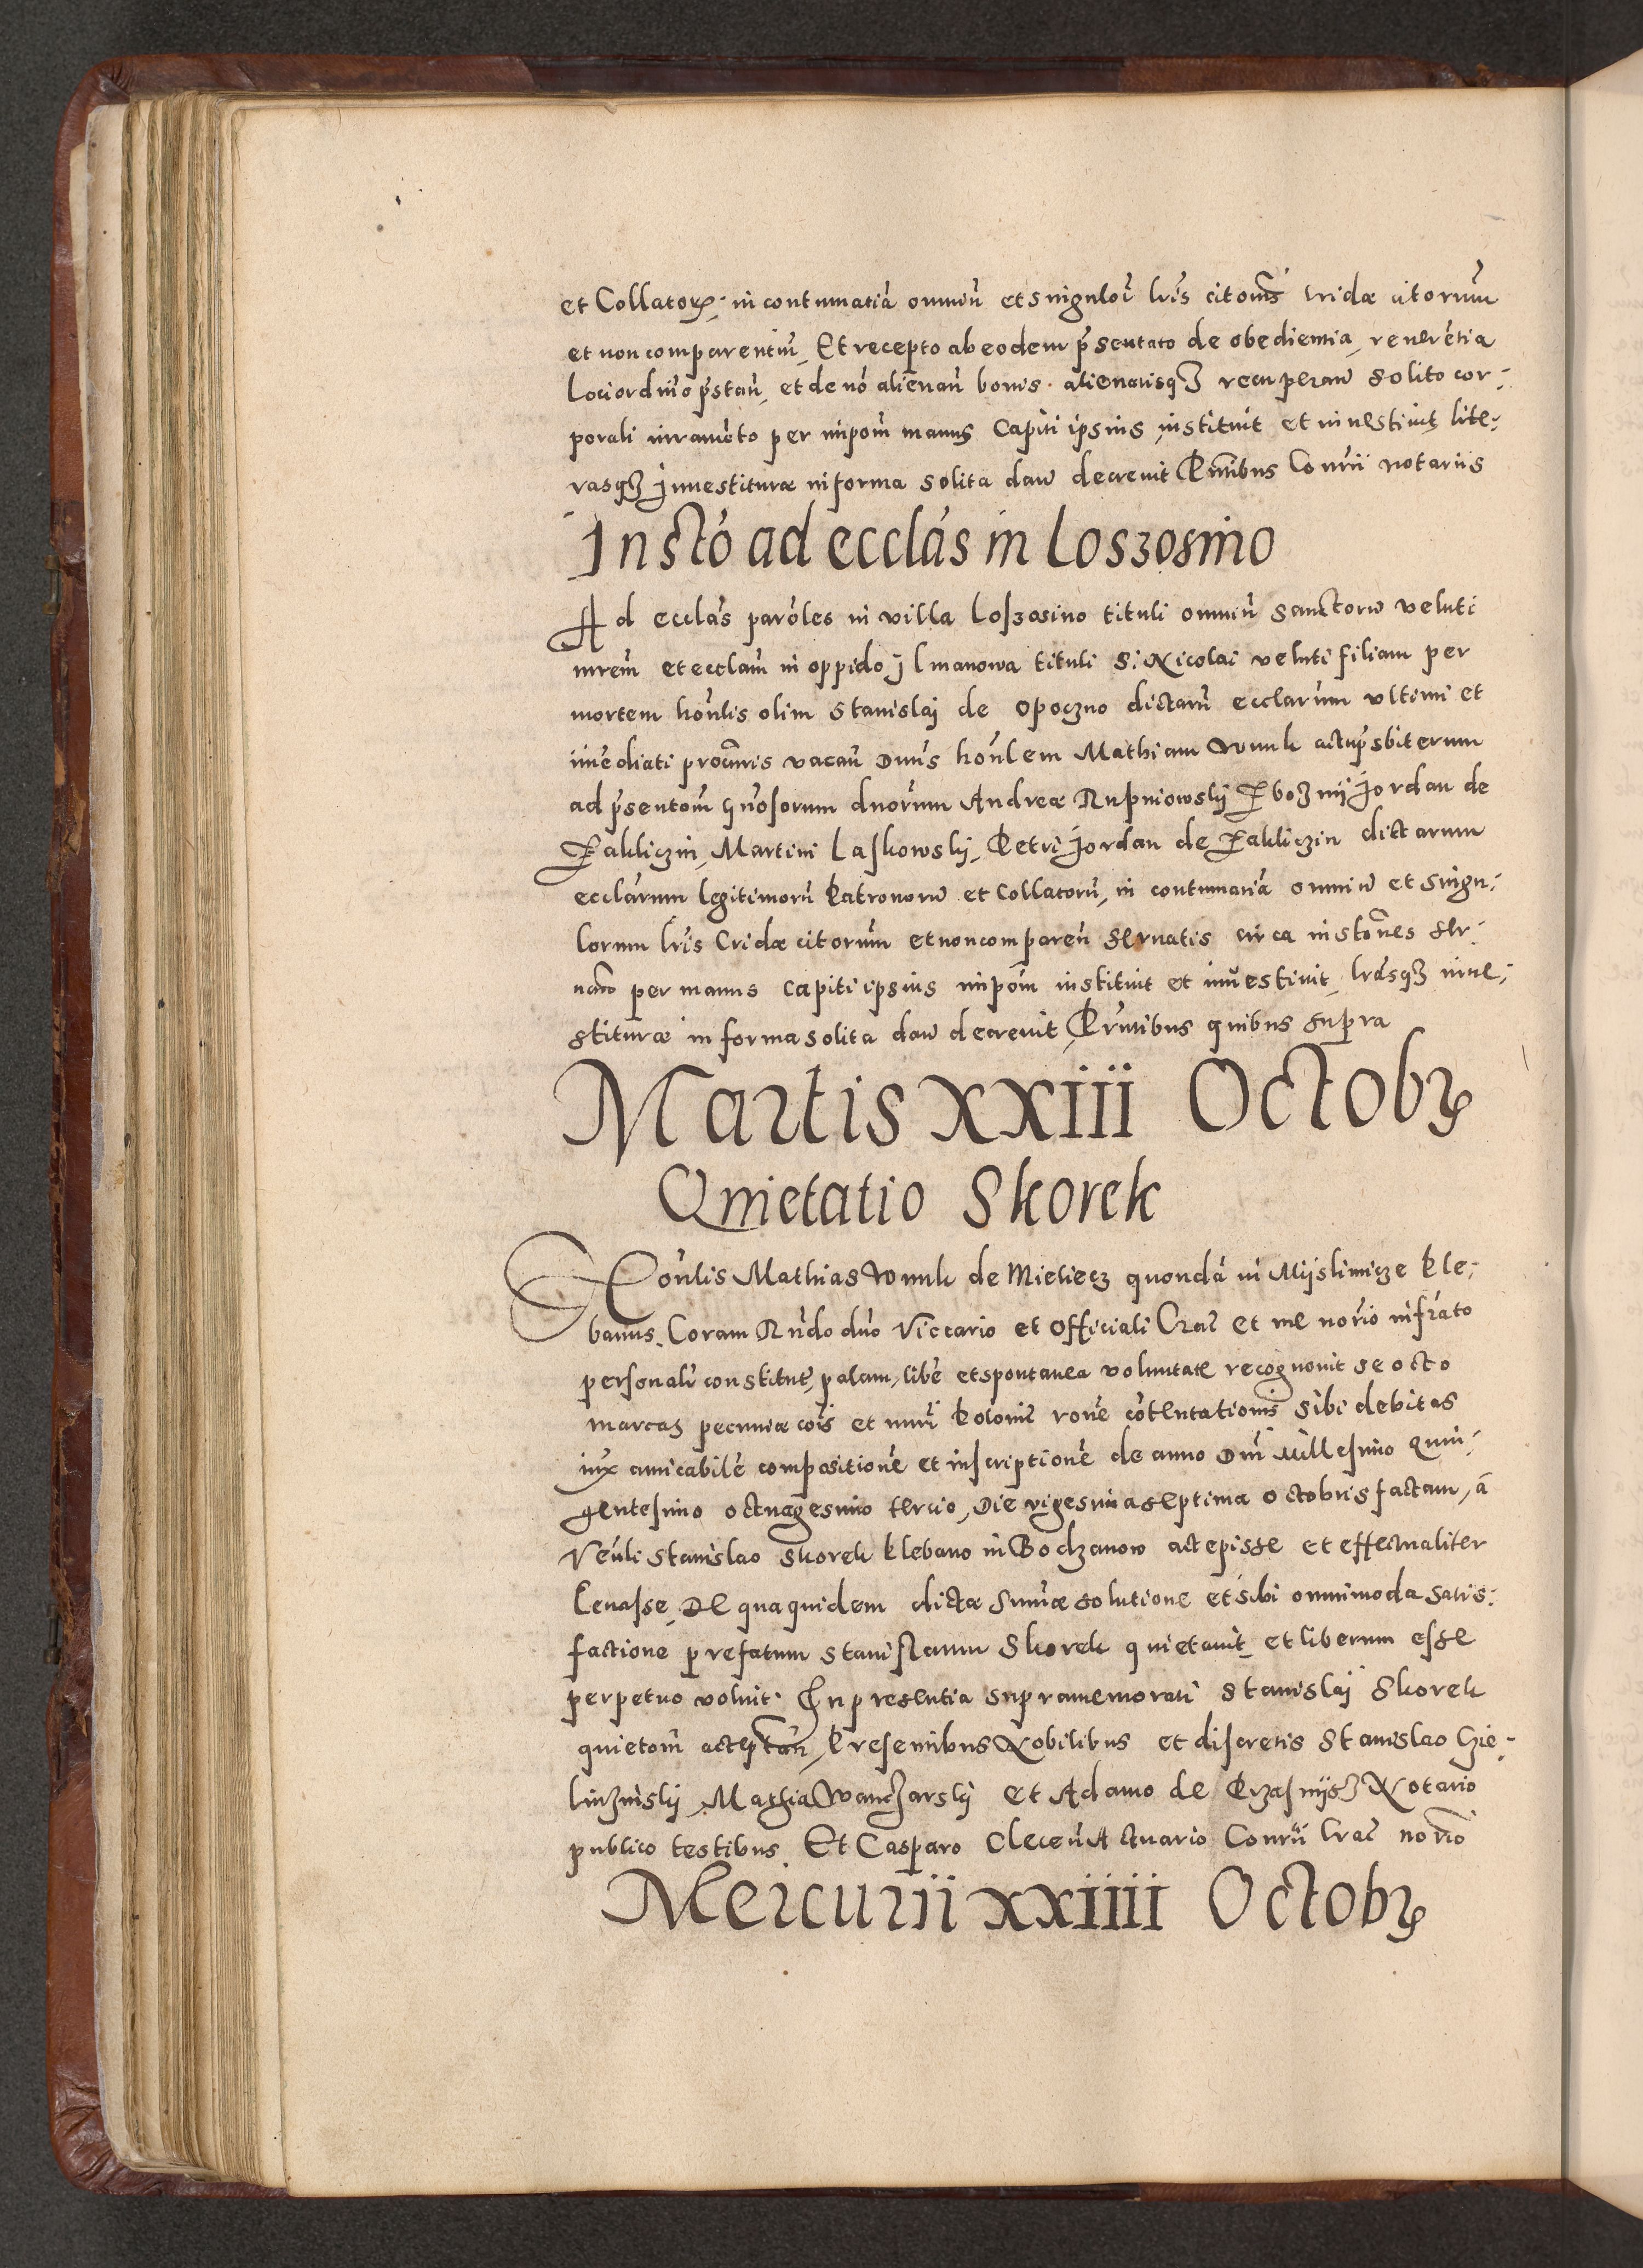 et Collatorꝝ in contumatiā omniū et singuloꝝ lrīs citoīis cridæ citorum
et non comparentiū, Et recepto ab eodem pr̄sentato de obedientia, reuerētia
loci ordrīo pr̄stan̄, et de nō alienan̄ bonis alienatisqꝫ recuperan̄ solito cor-
porali iuramēto per impoīm manus Capiti ipsius, instituit et inuestiuit, lite-
rasqꝫ Inuestituræ in forma solita dan̄ decreuit Pn̄tibus Consrii notariis
Instō ad ecclās in Loszosino
Ad ecclās parōles in villa Loszosino tituli omniū sanctorū veluti
mr̄em et ecclām in oppido Jlmanowa tituli S. Nicolai veluti filiam per
mortem honlis olim Stanislaj de Opoczno dictarū ecclarum vltimi et
imēdiati proānris vacan̄ Dnus honlem Mathiam Wnuk actu prs̄biterum
ad pr̄sentōm gn̄osorum dnorum Andreæ Rupniowskij Zboznij Jordan de
Zakliczin, Martini Laskowskj, Petri Jordan de Zakliczin dictarum
ecclarum legitimorū Patronorū et Collatorū, in contumatiā omniū et singu-
lorum lrīs Cridæ citorum et non comparen̄ seruatis circa instōnes ser-
uan̄ per manus Capiti ipsius impoīm instituit et inuestiuit, lrasqꝫ inue-
stituræ in forma solita dan̄ decreuit, Prn̄tibus quibus supra
Martis xxiii Octobꝝ
Quietatio Skorek
Honlis Mathias Wnuk de Mielecz quondā in Mijslimicze Ple-
banus. Coram Rn̄do dno Viccario et Officiali Crac̄ et me norīo infrāto
personalr̄ constitut̄, palam, libē et spontanea voluntate recognouit se octo
marcas pecuniæ cois̄ et nuri Polonic̄ rone cōtentationis sibi debitas
iux̄ amicabilē compositionē et inscriptionē de anno Dnī Millesimo Quin-
gentesimo octuagesimo tercio, Die vigesima septima octobris factam, à
Venli Stanislao Skorek Plebano in Bodzanow accepisse et effectualiter
leuasse, De qua quidem dictæ sum̄æ solutione et sibi omnimoda satis-
factione prefatum Stanislaum Skorek quietauit, et liberum esse
perpetuo voluit. In presentia supramemorati Stanislaj Skorek
quietoīm acceptan̄, Presentibus Nobilibus et discretis Stanislao Gie-
linznislij, Mathia Wanczarskij et Adamo de Przasnijsz Notario
publico testibus. Et Casparo Clecen̄ Actuario Consrii Crac̄ norīo
Mercurii xxiiii Octobꝝ